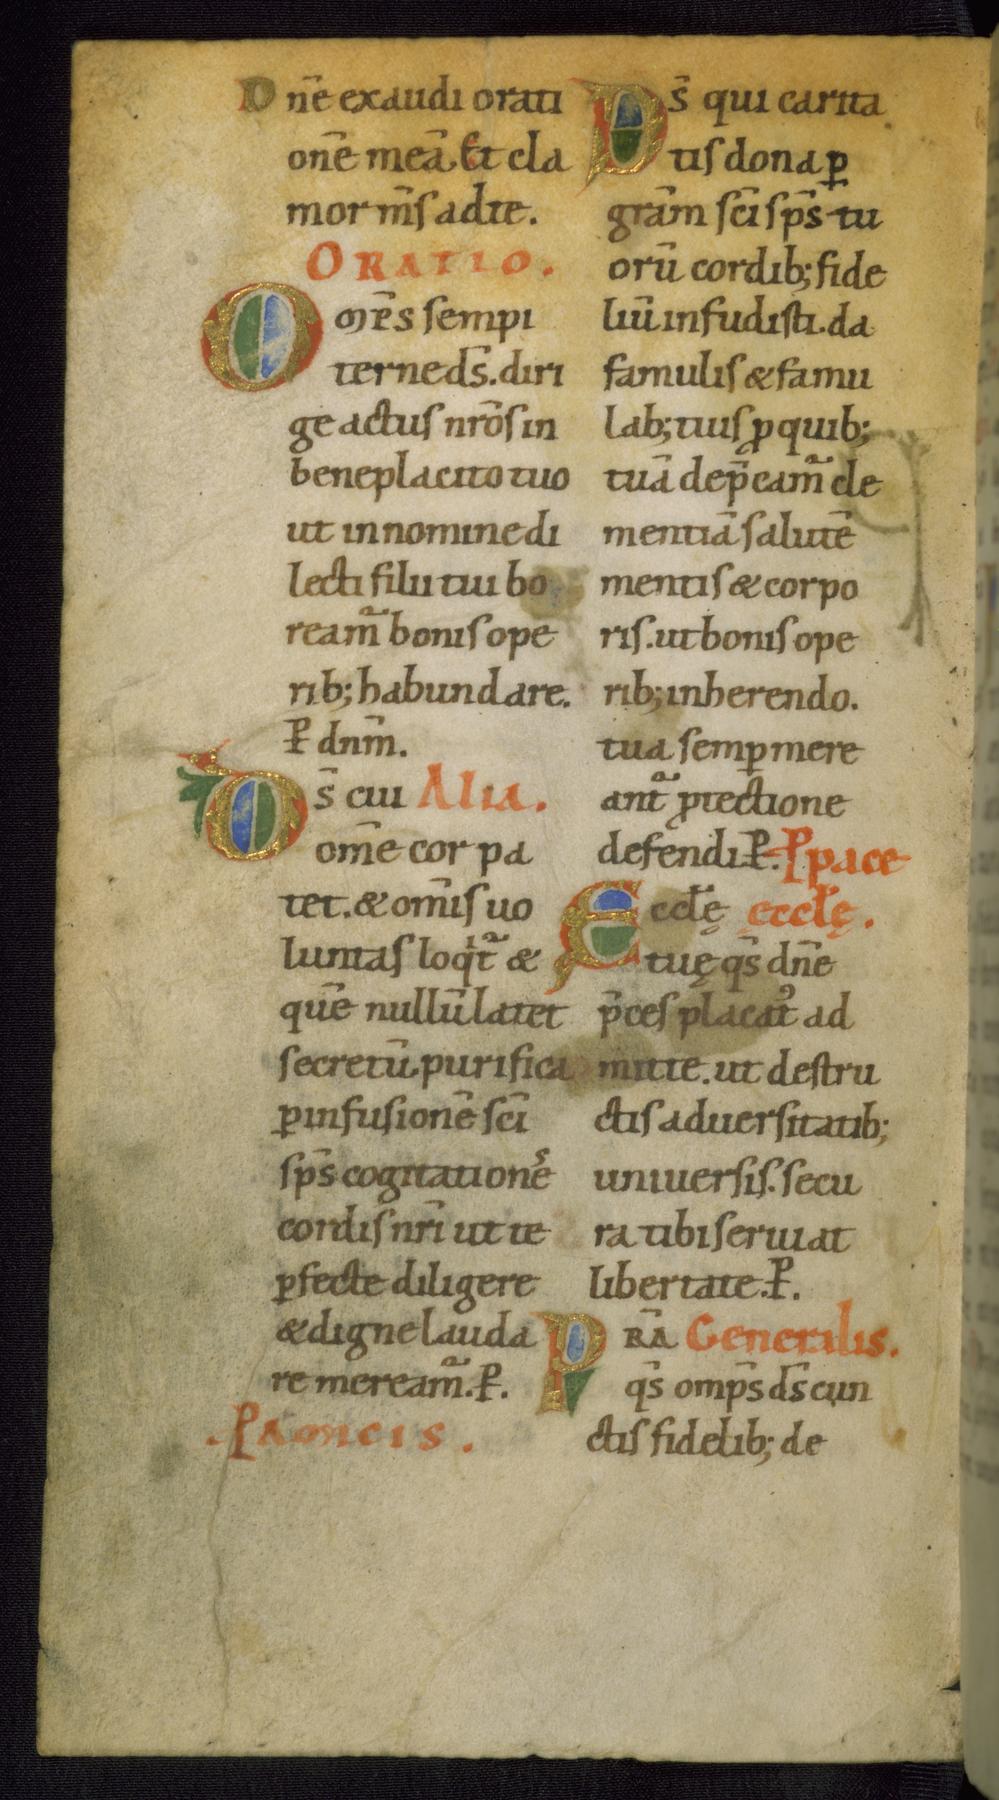 Dn̄e exaudi orati
onē meā. Et cla
mor m̄s ad te.
ORATIO.
Om̄ps sempi
terne ds̄. diri
ge actus nrōs in
beneplacito tuo
ut in nomine di
lecti filii tui bo
ream̄ bonis ope
rib; habundare.
P dnm̄.
Ds̄ cui Alia.
om̄e cor pa
tet. & om̄is uo
luntas loqt̄ &
quē nullū latet
secretū. purifica
ꝑ infusionē sc̄i
sp̄s cogitationē
cordis nr̄i ut te
ꝑfecte diligere
& digne lauda
re meream̄. P.
P AMICIS.
Ds̄ qui carita
tis dona ꝑ
grām sc̄i sp̄s tu
orū cordib; fide
liū infudisti. da
famulis & famu
lab; tuis ꝓ quib;
tuā dep̄cam̄ cle
mentiā salutē
mentis & corpo
ris. ut bonis ope
rib; inherendo.
tua semꝑ mere
ant̄ ꝓtectione
defendi. P. P pace
Eccl̄ę eccl̄ę.
tuę qs̄ dn̄e
p̄ces placat᷒ ad
mitte. ut destru
ctis aduersitatib;
uniuersis. secu
ra tibi seruiat
libertate. P.
PRĀ Generalis.
qs̄ omp̄s ds̄ cun
ctis fidelib; de